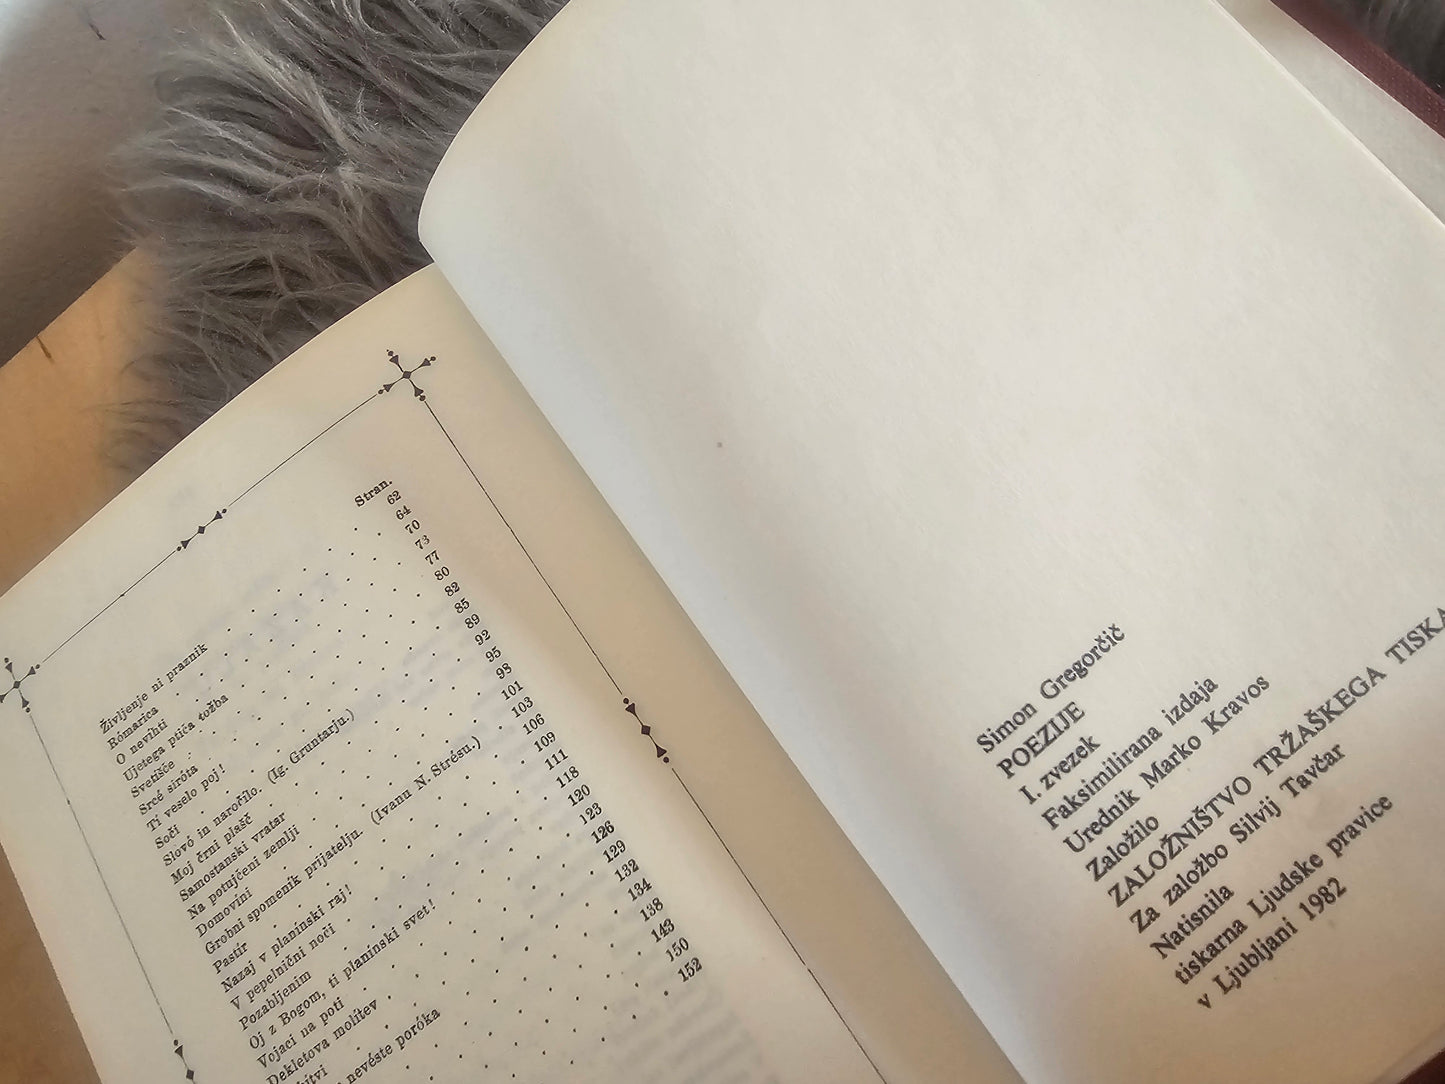 Stran.
Življenje ni praznik . . . 62
Rómarica . . . 64
O nevihti . . . 70
Ujetega ptiča tožba . . . 73
Svetišče . . . 77
Srcé siróta . . . 80
Ti veselo poj! . . . 82
Soči . . . 85
Slovó in naročilo. (Ig. Gruntarju.) . . . 89
Moj črni plašč . . . 92
Samostanski vratar . . . 95
Na potujčeni zemlji . . . 98
Domovini . . . 101
Grobni spomenik prijatelju. (Ivanu N. Strésu.) . . . 103
Pastir . . . 106
Nazaj v planinski raj! . . . 109
V pepelnični noči . . . 111
Pozabljenim . . . 118
Oj z Bogom, ti planinski svet! . . . 120
Vojaci na poti . . . 123
Dekletova molitev . . . 126
129
nevéste poróka . . . 132
134
138
143
150
152
Simon Gregorčič
POEZIJE
I. zvezek
Faksimilirana izdaja
Urednik Marko Kravos
Založilo
ZALOŽNIŠTVO TRŽAŠKEGA TISKA
Za založbo Silvij Tavčar
Natisnila
tiskarna Ljudske pravice
v Ljubljani 1982